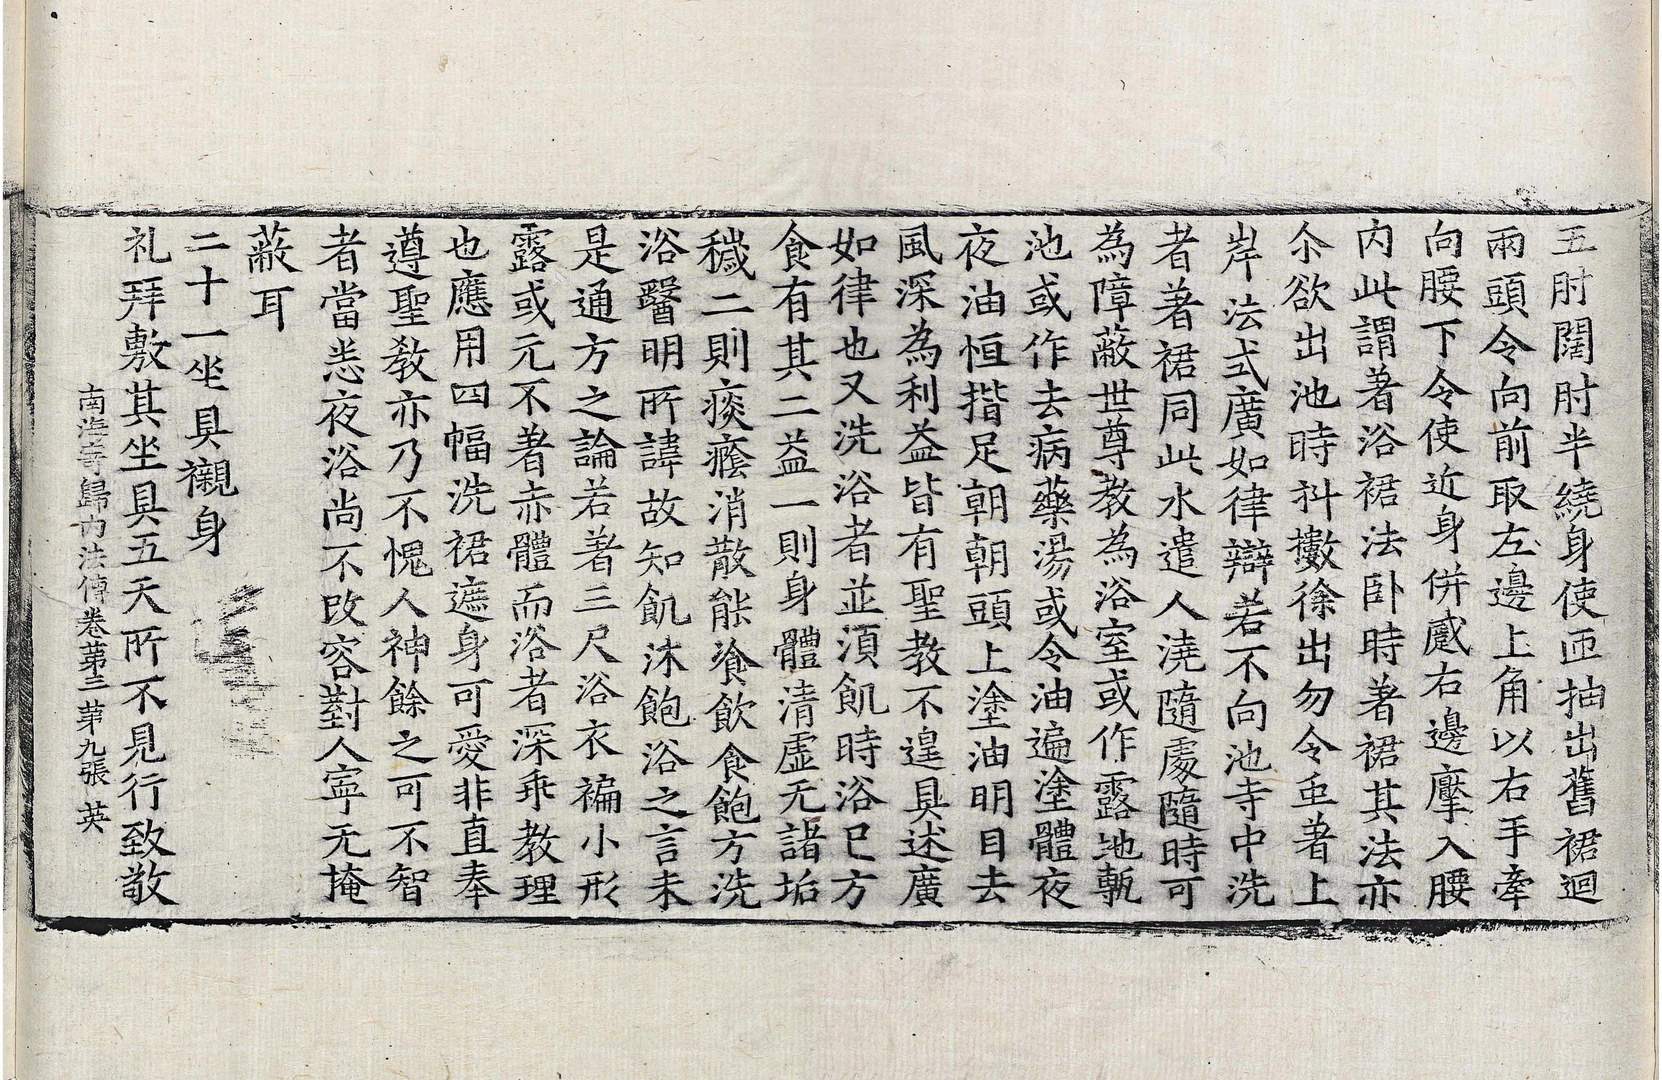 五肘闊肘半繞身使匝抽出舊裙迴
兩頭令向前取左邊上角以右手牽
向腰下令使近身併蹙右邊摩入腰
內此謂著浴裙法卧時著裙其法亦
尒欲出池時抖擻徐出勿令虫著上
岸法式廣如律辯若不向池寺中洗
者著裙同此水遣人澆隨處隨時可
為障蔽世尊教為浴室或作露地甎
池或作去病藥湯或令油遍塗體夜
夜油恒揩足朝朝頭上塗油明目去
風深為利益皆有聖教不遑具述廣
如律也又洗浴者並須飢時浴已方
食有其二益一則身體清虛无諸垢
穢二則痰癊消散能飡飲食飽方洗
浴醫明所諱故知飢沐飽浴之言未
是通方之論若著三尺浴衣褊小形
露或元不著赤體而浴者深乖教理
也應用四幅洗裙遮身可愛非直奉
遵聖教亦乃不愧人神餘之可不智
者當悉夜浴尚不改容對人寧无掩
蔽耳
二十一坐具襯身
礼拜敷其坐具五天所不見行致敬
南海寄歸內法傳卷第三 第九張 英